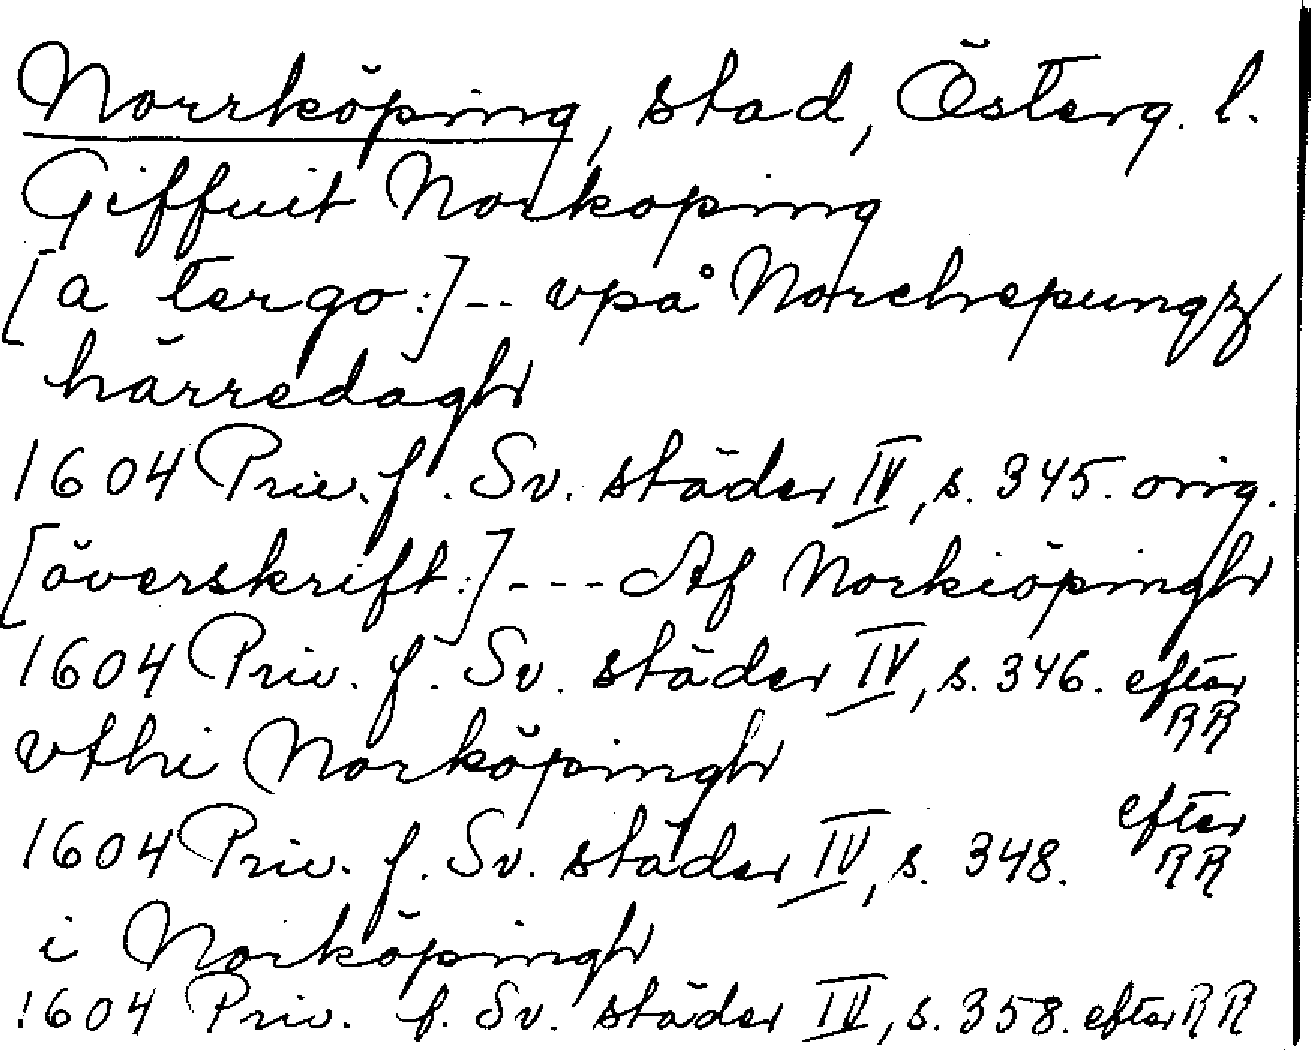 Norrköping, stad, Österg. l.
Giffuit Norkoping
[a tergo:]--- vpå Norchepungz
härredagh
1604 Priv. f. Sv. städer IV, s. 345. orig.
[överskrift:]--- Af Norkiöpingh
1604 Priv. f. Sv. städer IV, s. 346. efter RR
vthi Norköpingh
1604 Priv. f. Sv. städer IV, s. 348. efter RR
i Norköpingh
1604 Priv. f. Sv. städer IV, s. 358. efter RR